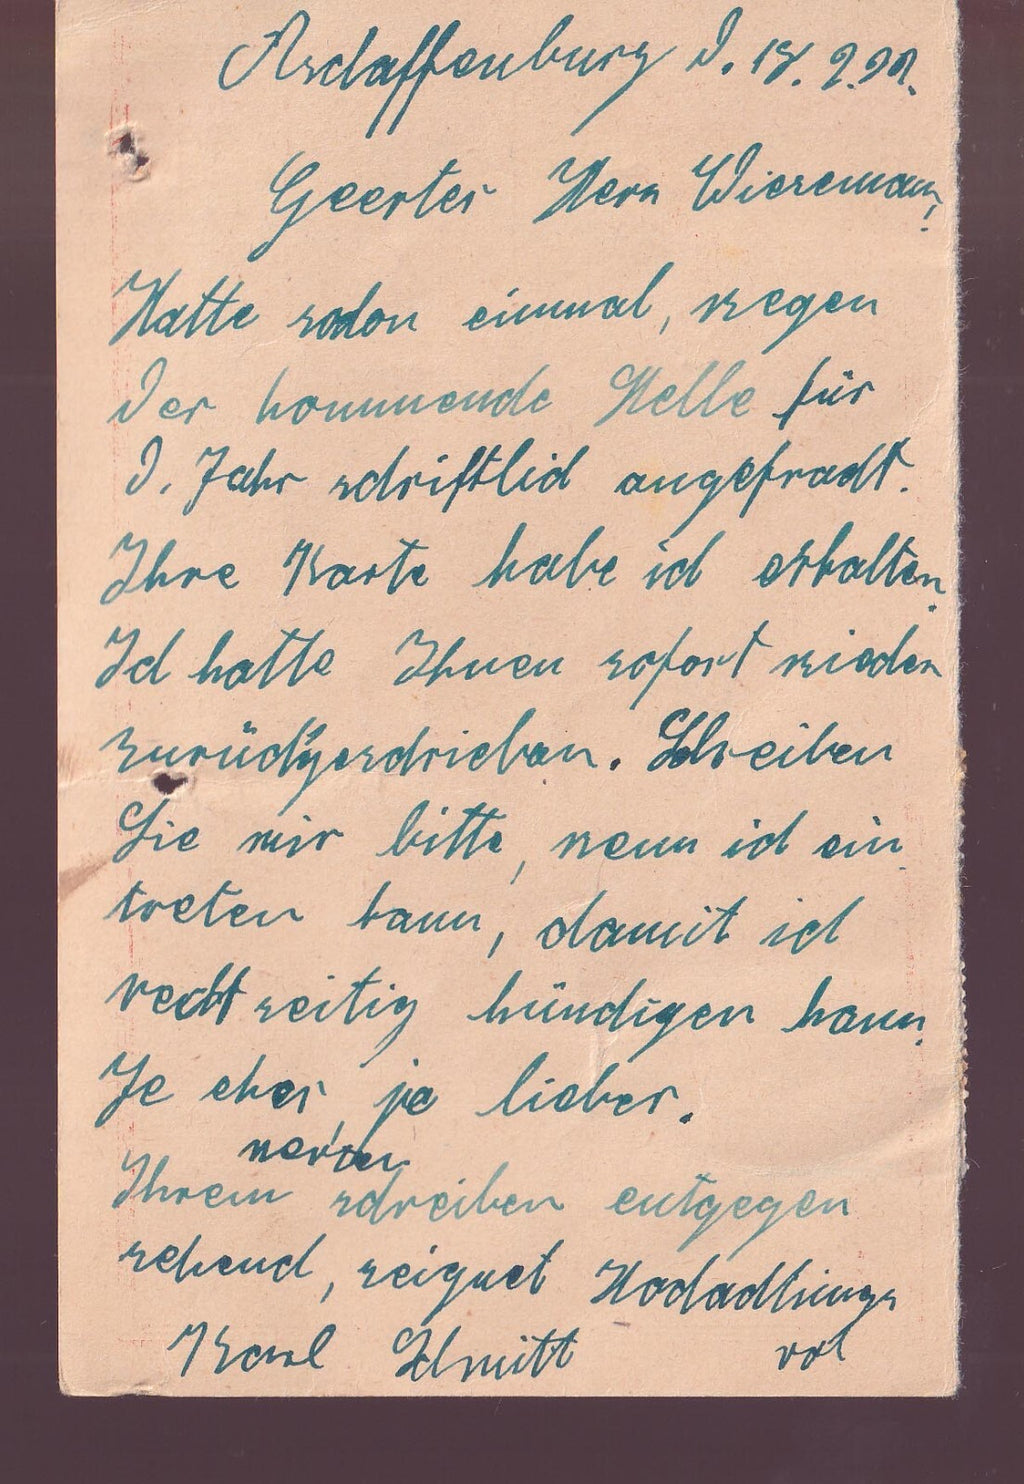 Aschaffenburg d. 18. 2.
Geerter Herr Wiesemann,
Hatte schon einmal, wegen
der kommende Stelle für
d. Jahr schriftlich angefracht.
Ihre Karte habe ich erhalten.
Ich hatte Ihnen sofort wieder
zurückgeschrieben. Schreiben
Sie mir bitte, wenn ich ein
treten kann, damit ich
rechtzeitig kündigen kann.
Je eher, je lieber.
werten
Ihrem schreiben entgegen
sehend, zeignet Hochachtungs
Karl Schmitt vol